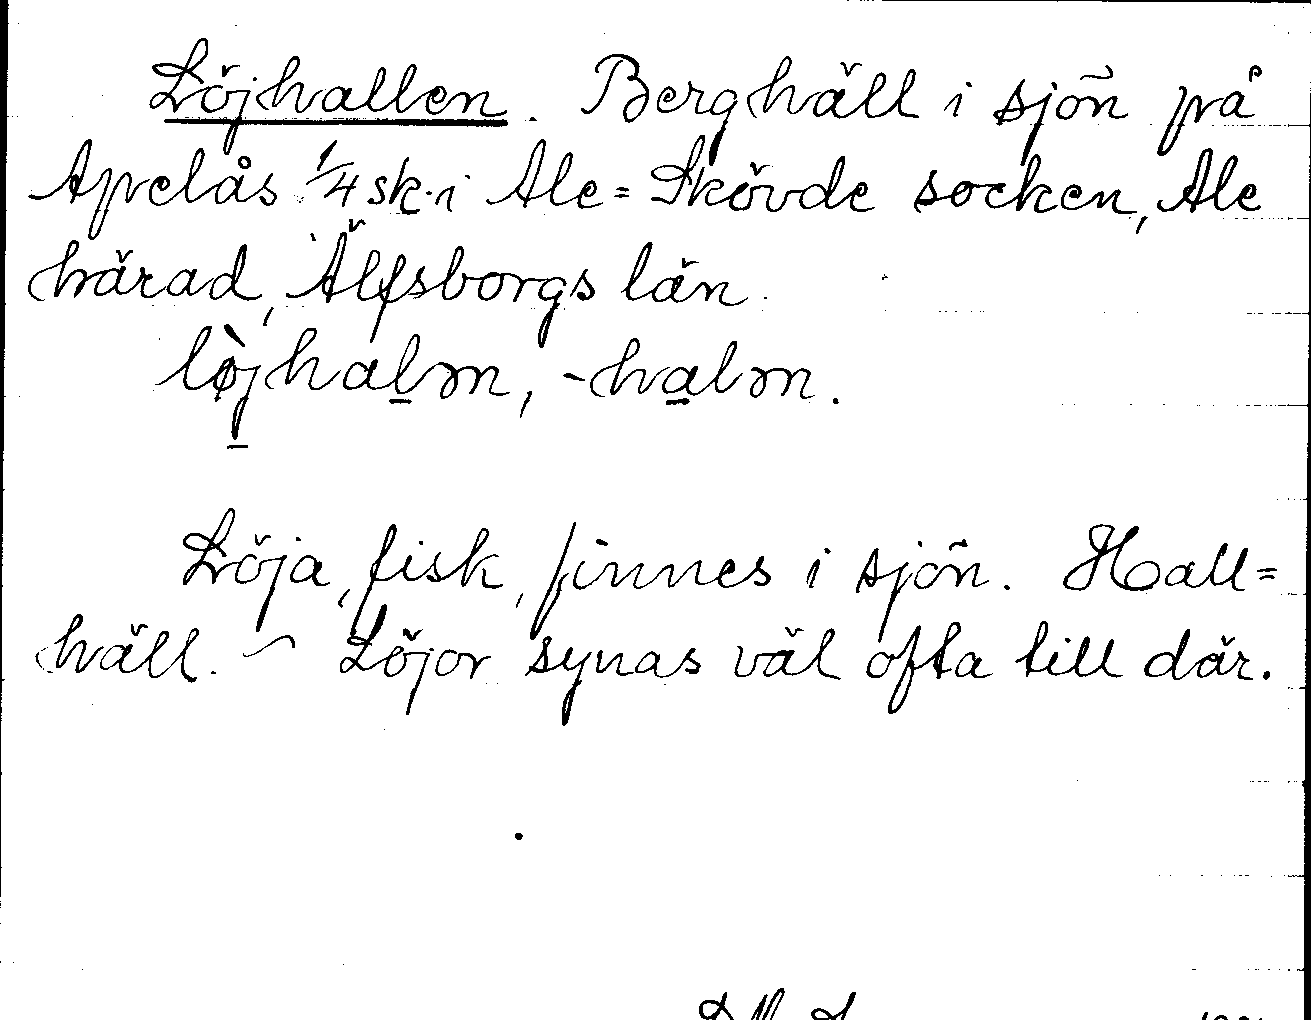 Löjhallen. Berghäll i sjön på
Apelås 1/4 sk. i Ale=Skövde socken, Ale
härad, Älfsborgs län.
lø̀jhalm, -halm.
Löja, fisk, finnes i sjön. Hall=
häll. ~ Löjor synas väl ofta till där.